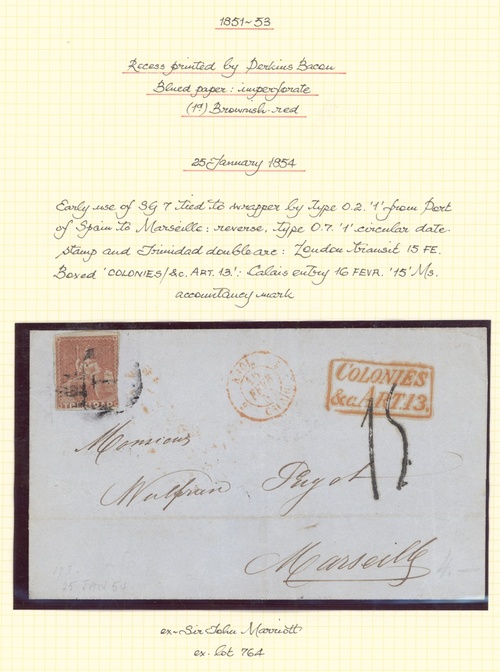 1851~53
Recess printed by Perkins Bacon
Blued paper: imperforate
(1d) Brownish-red
25 January 1854
Early use of SG 7 tied to wrapper by type 0.2. '1' from Port
of Spain to Marseille: reverse, type 0.7. '1' circular date-
stamp and Trinidad double arc: London transit 15 FE.
Boxed 'COLONIES/&c. ART. 13.': Calais entry 16 FEVR. '15' Ms.
accountancy mark
COLONIES
&c. ART.13.
15
TRINIDAD
Monsieur
Wulfran Puget
Marseille
25 Jan 54
ex-Sir John Marriott
ex. lot 764